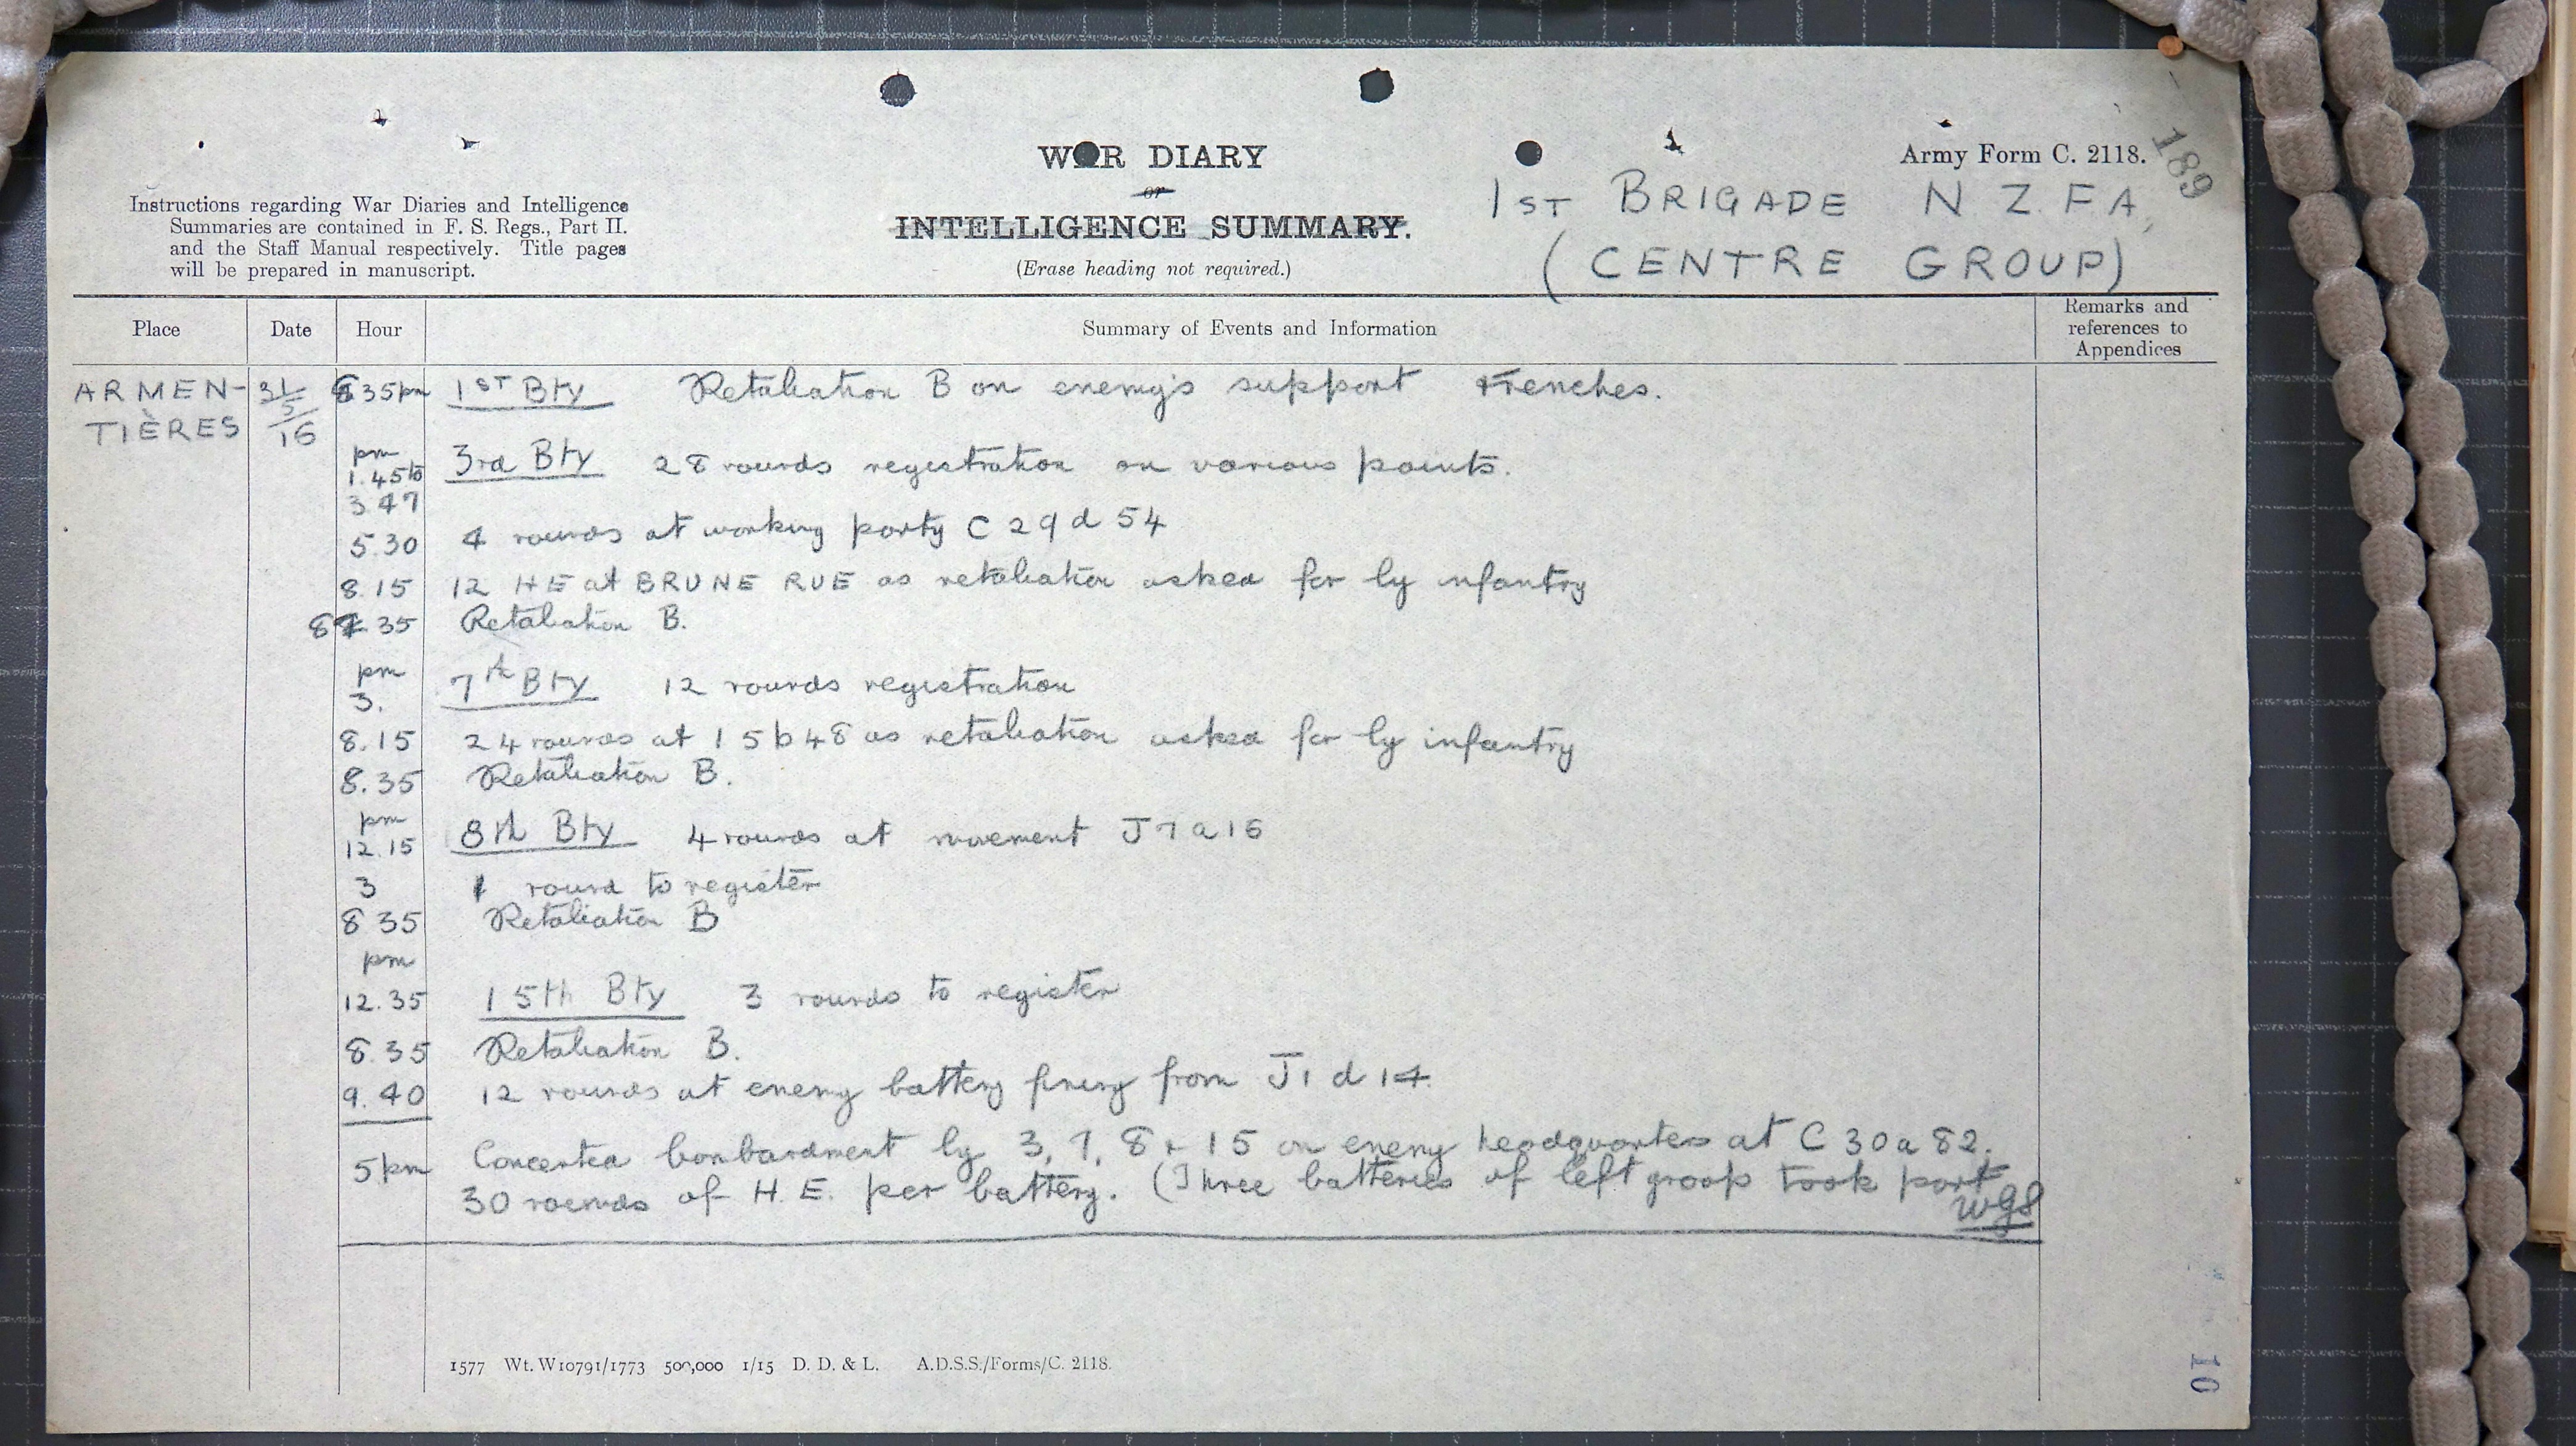 WAR DIARY
or
INTELLIGENCE SUMMARY.
(Erase heading not required.)
Army Form C. 2118.
189
1ST BRIGADE N Z F A
(CENTRE GROUP)
Instructions regarding War Diaries and Intelligence
Summaries are contained in F. S. Regs., Part II.
and the Staff Manual respectively. Title pages
will be prepared in manuscript.
Place Date Hour Summary of Events and Information Remarks and
references to
Appendices
ARMEN- 31 8 35pm 1ST Bty Retaliation B on enemy's support trenches.
TIÈRES 5
16
pm
1.45 to 3rd Bty 28 rounds registration on various points.
3.47
5.30 4 rounds at working party C 29 d 54
8.15 12 HE at BRUNE RUE as retaliation asked for by infantry
8 35 Retaliation B.
pm
3. 7th Bty 12 rounds registration
8.15 24 rounds at I 5 b 48 as retaliation asked for by infantry
8.35 Retaliation B.
pm
12.15 8th Bty 4 rounds at movement J 7 a 16
3 1 round to register
8 35 Retaliation B
pm
12.35 15th Bty 3 rounds to register
8.35 Retaliation B.
9.40 12 rounds at enemy battery firing from J 1 d 14.
5 pm Concerted bombardment by 3, 7, 8 + 15 on enemy headquarters at C 30 a 82.
30 rounds of H. E. per battery. (Three batteries of left group took part
1577 Wt. W10791/1773 500,000 1/15 D. D. & L. A.D.S.S./Forms/C. 2118.
10